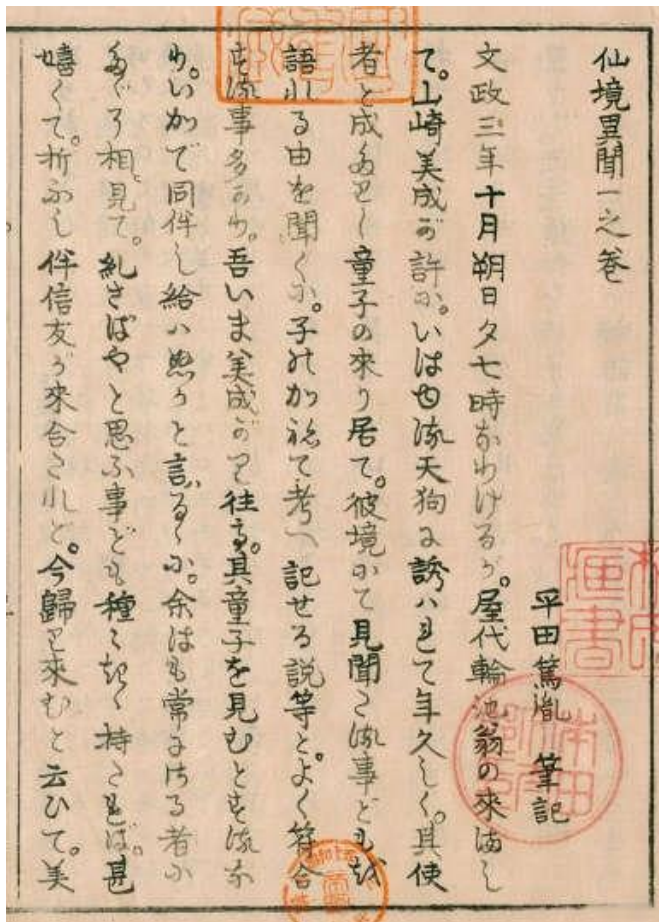 仙境異聞一之巻
平田篤胤 筆記
文政三年十月朔日夕七時なりけるが。屋代輪池翁の來まし
て。山崎美成が許に。いはゆる天狗に誘はれて年久しく。其使
者と成たりし童子の來り居て。彼境にて見聞たる事どもを
語れる由を聞くに。子のかねて考へ記せる説等と。よく符合
する事多かり。吾いま美成がり往て。其童子を見むとする
り。いかで同伴し給はぬかと言るゝに。余はも常にさる者に
たゞに相見て。糺さばやと思ふ事ども種々きく持たれば。甚
嬉くて。折ふし伴信友が來合たれど。今歸り來むと云ひて。美